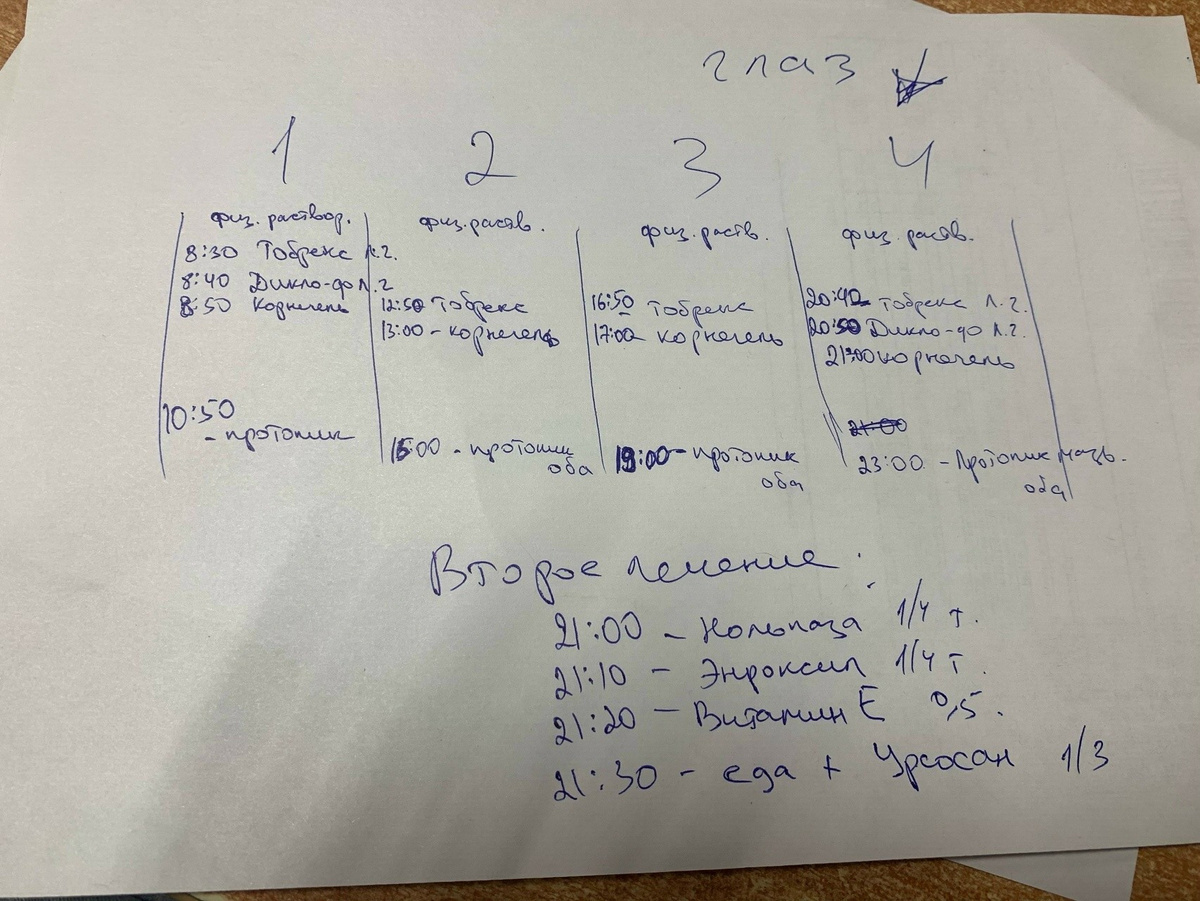 глаз
1 2 3 4
физ. раствор.
8:30 Тобрекс л.г.
8:40 Дикло-ф Л.г
8:50 Корнегель
10:50
- протопик
физ. раств.
12:50 Тобрекс
13:00 - корнегель
15:00 - протопик
оба
физ. раств.
16:50 тобрекс
17:00 корнегель
19:00 - протопик
оба
физ. раств.
20:40 тобрекс л.г.
20:50 Дикло-ф л.г.
21:00 корнегель
21:00
23:00 - Протопик мазь.
оба
Второе лечение:
21:00 - Нольпаза 1/4 т.
21:10 - Энроксил 1/4 т.
21:20 - Витамин Е 0,5.
21:30 - еда + Урсосан 1/3